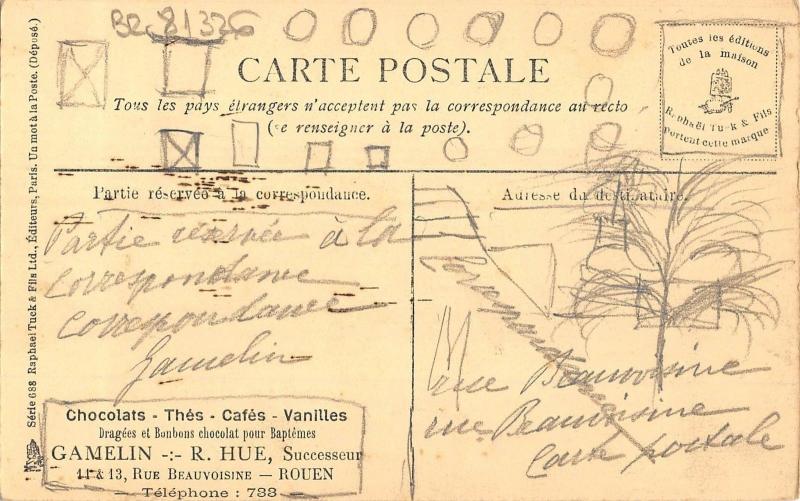 BR 81336
CARTE POSTALE
Tous les pays étrangers n'acceptent pas la correspondance au recto
(se renseigner à la poste).
Toutes les éditions
de la maison
Raphaël Tuck & Fils
Portent cette marque
Série 688 Raphael Tuck & Fils Ltd., Éditeurs, Paris. Un mot à la Poste. (Déposé.)
Partie réservée à la correspondance.
Partie réservée à la
correspondance
correspondance
Gamelin
Chocolats - Thés - Cafés - Vanilles
Dragées et Bonbons chocolat pour Baptêmes
GAMELIN -:- R. HUE, Successeur
11 & 13, RUE BEAUVOISINE — ROUEN
— Téléphone : 733 —
Adresse du destinataire.
rue Beauvoisine
rue Beauvoisine
Carte postale